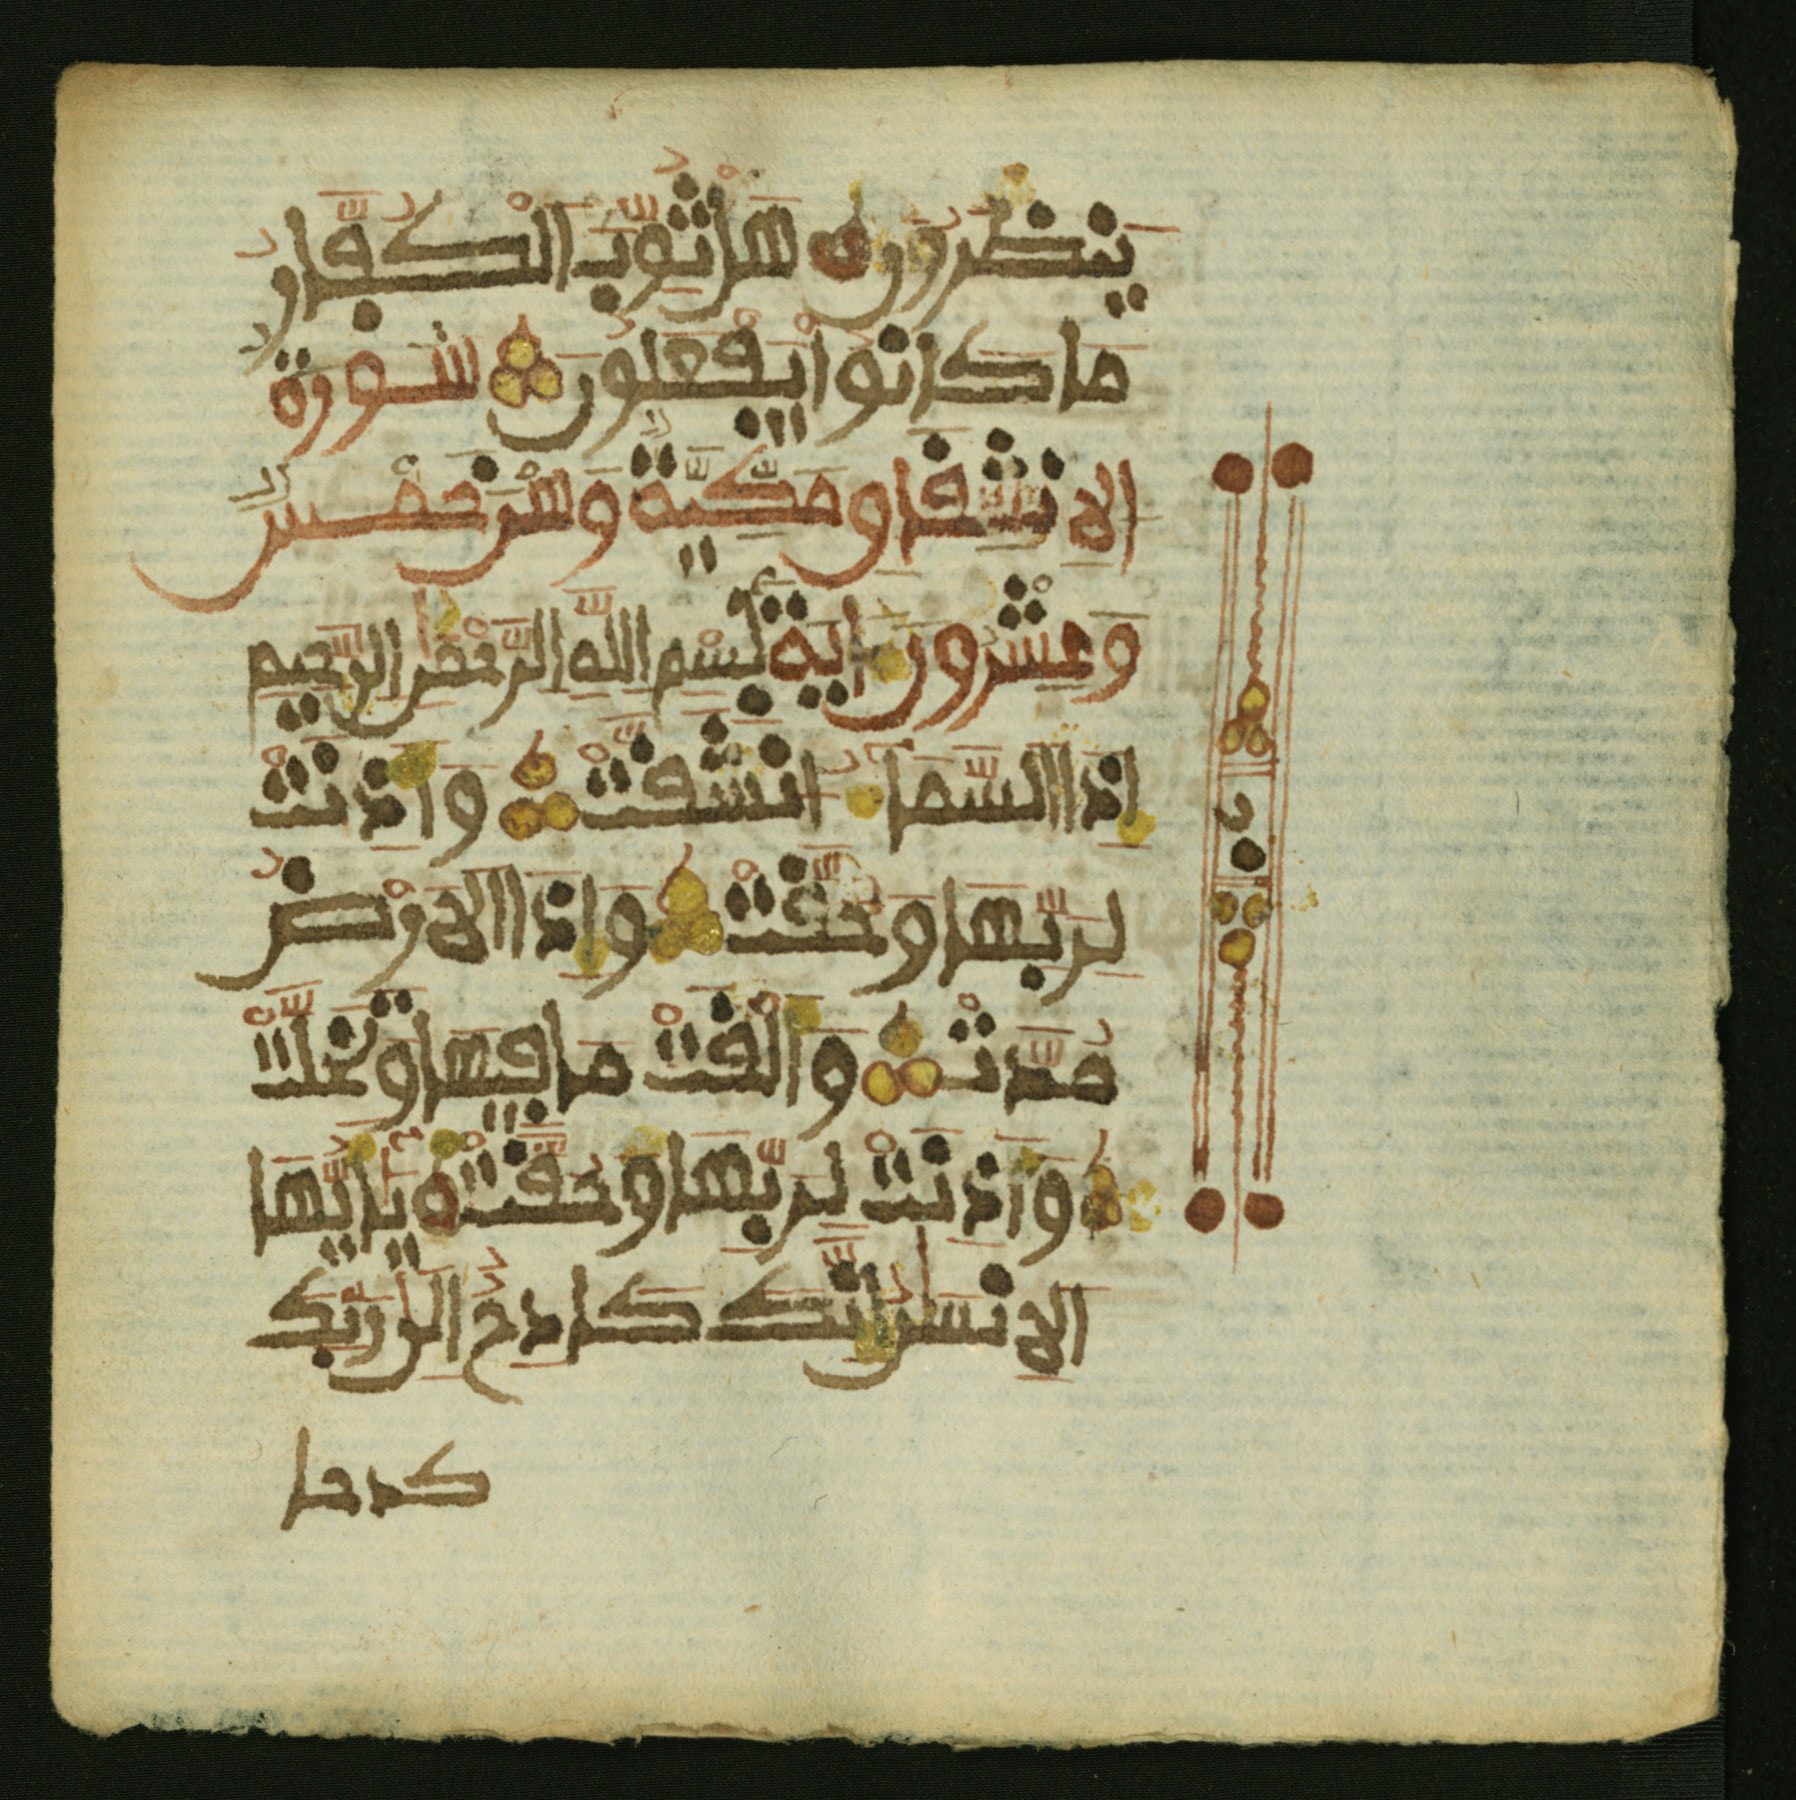 ينظرون هل ثوب الكفار
ما كانوا يفعلون سورة
الانشقاو مكية وهى خمس
وعشرون اية بسم الله الرحمن الرحيم
اذا السما انشقت واذنت
لربها وحقت واذا الارض
مدت والقت ما فيها وتخلت
واذنت لربها وحقت يايها
الانسن انك كادح الى ربك
كدحا